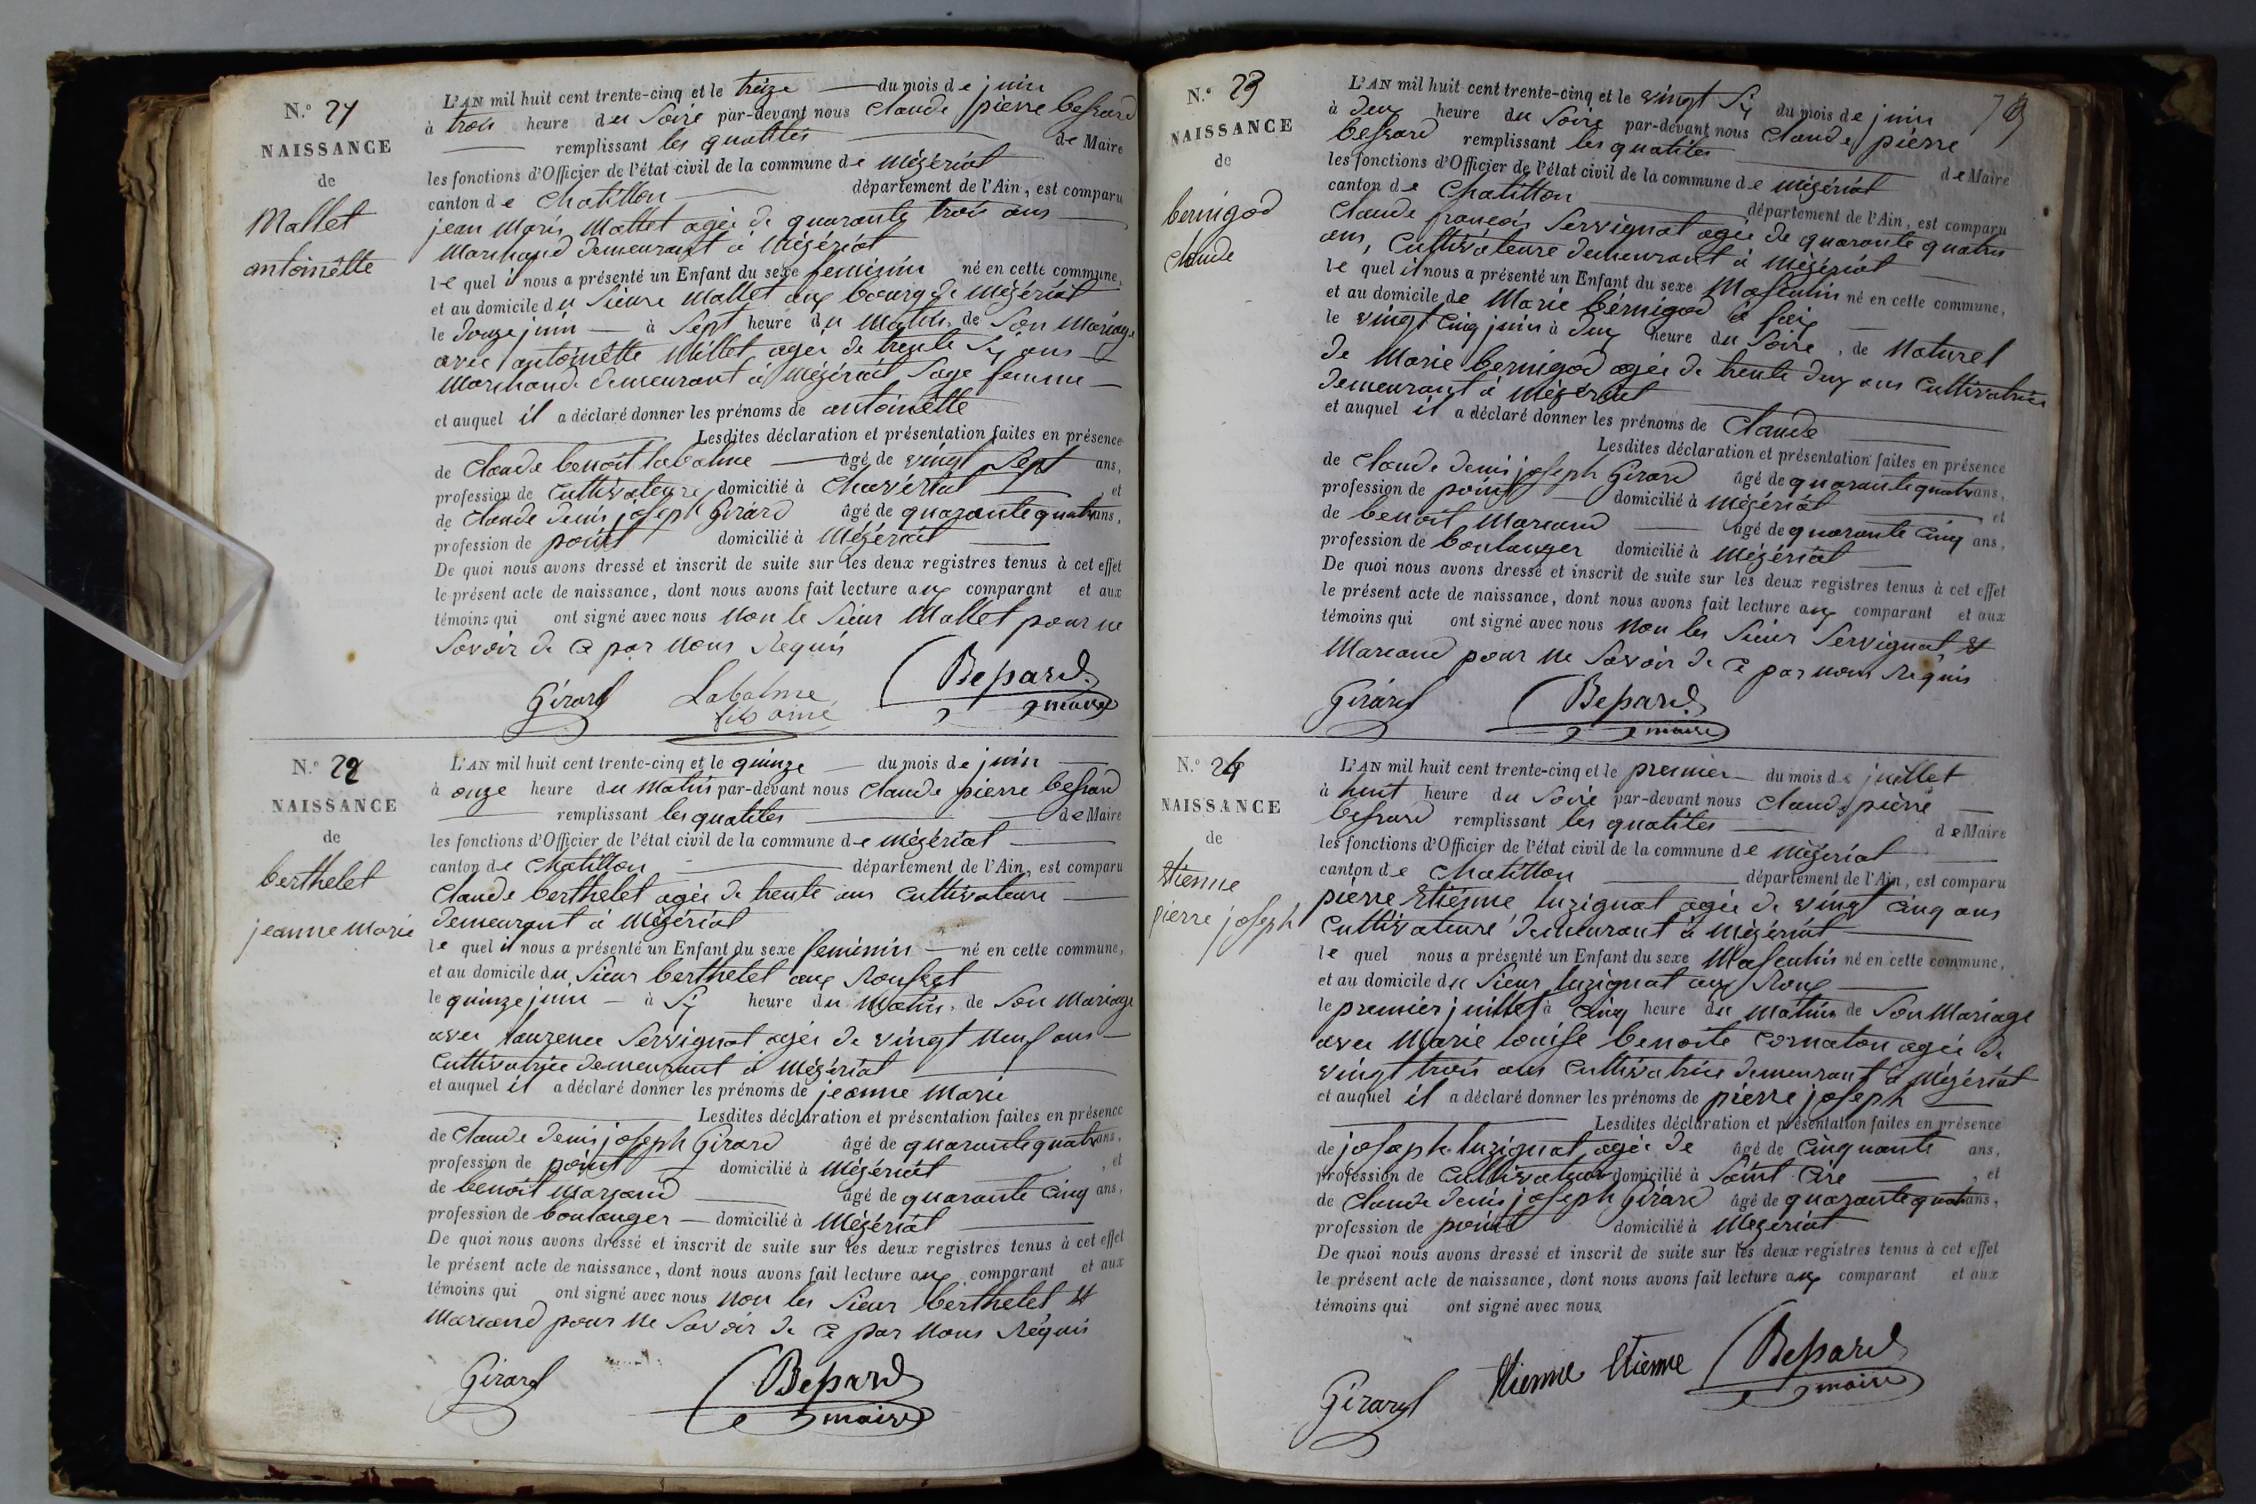 N.° 21
NAISSANCE
de
Mallet
antoinètte
L'AN mil huit cent trente-cinq et le treize du mois de juin
à trois heure du Soire par-devant nous Claude pierre bessard
remplissant les qualités de Maire
les fonctions d'Officier de l'état civil de la commune de mézériat
canton de Chatillon département de l'Ain, est comparu
jean Marie Mallet agée de quarante trois ans
Marchand demeurant à Mézériat
le quel il nous a présenté un Enfant du sexe feminin né en cette commune,
et au domicile du Sieure Mallet aux bourg de Mézériat
le douze juin à Sept heure du Matin, de Son Mariage
avec antoinètte Millet agée de trente Six ans
Marchande demeurant à Mézériat Sage femme
et auquel il a déclaré donner les prénoms de antoinètte
Lesdites déclaration et présentation faites en présence
de Claude benoit labalme âgé de vingt Sept ans,
profession de Cultivateure domicilié à Chavériat et
de Claude denis joseph Girard âgé de quarante quatre ans,
profession de point domicilié à Mézériat
De quoi nous avons dressé et inscrit de suite sur les deux registres tenus à cet effet
le présent acte de naissance, dont nous avons fait lecture aux comparant et aux
témoins qui ont signé avec nous Non le Sieur Mallet pour ne
Savoir de ce par Nous Requis
Girard Labalme fils ainé Bessard maire
N.° 22
NAISSANCE
de
berthelet
jeanne Marie
L'AN mil huit cent trente-cinq et le quinze du mois de juin
à onze heure du Matin par-devant nous Claude pierre bessard
remplissant les qualités de Maire
les fonctions d'Officier de l'état civil de la commune de mézériat
canton de Chatillon département de l'Ain, est comparu
Claude berthelet agée de trente ans Cultivateure
demeurant à Mézériat
le quel il nous a présenté un Enfant du sexe feminin né en cette commune,
et au domicile du Sieur berthelet aux Rousset
le quinze juin à Six heure du Matin, de Son Mariage
avec Laurence Servignat agée de vingt Neuf ans
Cultivatrice demeurant à Mézériat
et auquel il a déclaré donner les prénoms de jeanne Marie
Lesdites déclaration et présentation faites en présence
de Claude denis joseph Girard âgé de quarante quatre ans,
profession de point domicilié à Mézériat, et
de benoit Marsand âgé de quarante Cinq ans,
profession de boulanger domicilié à Mézériat
De quoi nous avons dressé et inscrit de suite sur les deux registres tenus à cet effet
le présent acte de naissance, dont nous avons fait lecture aux comparant et aux
témoins qui ont signé avec nous Non les Sieur berthelet et
Marsand pour Ne Savoir de ce par Nous Réquis
Girard Bessard maire
N.° 23
NAISSANCE
de
bernigod
Claude
L'AN mil huit cent trente-cinq et le vingt Six du mois de juin
à deux heure du Soire par-devant nous Claude pierre
bessard remplissant les qualités de Maire
les fonctions d'Officier de l'état civil de la commune de mézériat
canton de Chatillon département de l'Ain, est comparu
Claude françois Servignat agée de quarante quatre
ans, Cultivateure demeurant à Mézériat
le quel il nous a présenté un Enfant du sexe Masculin né en cette commune,
et au domicile de Marie bérnigod à
le vingt Cinq juin à deux heure du Soire, de Naturel
de Marie bernigod agée de trente deux ans Cultivatrice
demeurant à Mézériat
et auquel il a déclaré donner les prénoms de Claude
Lesdites déclaration et présentation faites en présence
de Claude denis joseph Girard âgé de quarante quatre ans,
profession de point domicilié à Mézériat et
de benoit Marsand âgé de quarante Cinq ans,
profession de boulanger domicilié à Mézériat
De quoi nous avons dressé et inscrit de suite sur les deux registres tenus à cet effet
le présent acte de naissance, dont nous avons fait lecture aux comparant et aux
témoins qui ont signé avec nous Non les Sieur Servignat et
Marsand pour Ne Savoir de ce par nous Réquis
Girard Bessard maire
N.° 24
NAISSANCE
de
Etienne
pierre joseph
L'AN mil huit cent trente-cinq et le premier du mois de juillet
à huit heure du Soire par-devant nous Claude pierre
bessard remplissant les qualités de Maire
les fonctions d'Officier de l'état civil de la commune de Mézériat
canton de Chatillon département de l'Ain, est comparu
pierre Etienne luzignat agée de vingt Cinq ans
Cultivateure demeurant à Mézériat
le quel nous a présenté un Enfant du sexe Masculin né en cette commune,
et au domicile du Sieur luzignat aux Roux
le premier juillet à Cinq heure du Matin de Son Mariage
avec Marie louise benoite Cornaton agée de
vingt trois ans Cultivatrice demeurant à Mézériat
et auquel il a déclaré donner les prénoms de pierre joseph
Lesdites déclaration et présentation faites en présence
de joseph luzignat agée de âgé de Cinquante ans,
profession de Cultivateur domicilié à Saint Cire, et
de Claude denis joseph Girard âgé de quarante quatre ans,
profession de point domicilié à Mezériat
De quoi nous avons dressé et inscrit de suite sur les deux registres tenus à cet effet
le présent acte de naissance, dont nous avons fait lecture aux comparant et aux
témoins qui ont signé avec nous
Girard Etienne Etienne Bessard maire